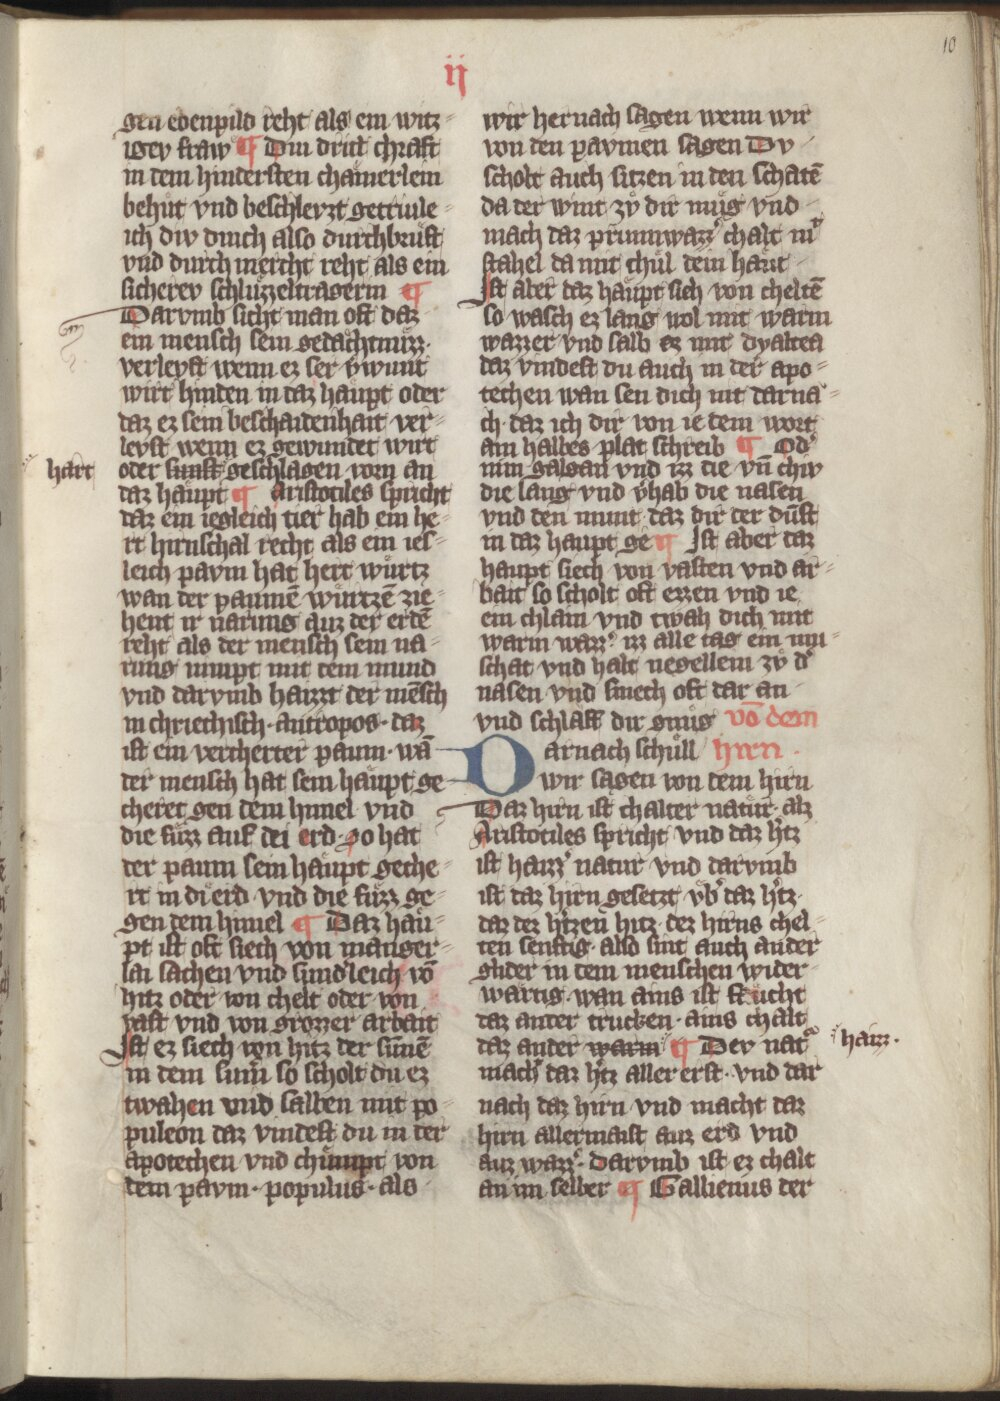 10
ij
gen ebenpild reht als ein witz⸗
igev fraw ¶ Din drit chraft
in dem hindersten chamerlein
behůt vnd beschlevzt getriule⸗
ich div dinch also durchbruft
vnd durch mercht reht als ein
sicherev schluzzeltragerin ¶
Darvmb sicht man oft daz
ein mensch sein gedåchtnůzz
verleyst wenn ez ser ẏwunt
wirt hinden in daz haupt oder
daz ez sein beschaidenhait ver⸗
leyst wenn ez gewundet wirt
oder sunst geschlagen vorn an
hart
daz haupt ¶ Aristotiles spricht
daz ein iegleich tier hab ein he⸗
rt hirnschal recht als ein ies⸗
leich pavm hat hert wůrtz
wan der paumē wůrtzē zie⸗
hent ir narung auz der erdē
reht als der mensch sein na⸗
rung nimpt mit dem mund
vnd darvmb haizzt der mēsch
in chriechisch · antropos · daz
ist ein vercherter paum · wā
der mensch hat sein haupt ge
cheret gen dem himel vnd
die fůzz auf dei erd · so hat
der paum sein haupt geche⸗
rt in di erd · vnd die fůzz ge⸗
gen dem himel ¶ Daz hau⸗
pt ist oft siech von manger⸗
lai sachen vnd sundleich vō
hitz oder von chelt oder von
vast vnd von grozzer arbait
Ist ez siech von hitz der sunē
in dem sumer so scholt du ez
twahen vnd salben mit po⸗
puleon daz vindest du in der
apotechen vnd chumpt von
dem pavm · populus · als
wir hernach sagen wenn wir
von den pavmen sagen Dv
scholt auch sitzen in den schatē
da der wint zů dir můg vnd
mach daz prunnwazz' chalt in'
stahel da mit chůl dein haut
Ist aber daz haupt sich von cheltē
so wasch ez lang wol mit warm
wazzer vnd salb ez mit dyaltea
daz vindest du auch in der apo⸗
techen wan sen dich nit darna⸗
ch · daz ich dir von ie dem wort
ain halbes plat schreib ¶ Od'
nim galgan vnd izz die vn̄ chiv
die lang vnd v̇hab die nasen
vnd den munt daz dir der dunst
in daz haupt ge ¶ Ist aber daz
haupt siech von vasten vnd ar⸗
bait so scholt oft ezzen vnd ie
ein chlain vnd twah dich mit
warm wazz' · izz alle tag ein mu⸗
schat vnd halt negellein zů d'
nasen vnd smech oft dar an
vnd schlaff dir gnůg vō dem
hirn ·
Darnach schůll
wir sagen von dem hirn
Daz hirn ist chalter natůr · alz
Aristotiles spricht vnd daz h'tz
ist haizz' natur vnd darvmb
ist daz hirn gesetzt · v̇b' daz h'tz
daz dez h'tzen hitz · dez hirns chel⸗
ten senftig · also sint auch ander
glider in dem menschen wider⸗
wårtig · wan ains ist feucht
daz ander trucken · ains chalt
daz ander warm ¶ Dev nat'
haizz ·
mach' daz h'tz aller erst · vnd dar
nach daz hirn vnd macht daz
hirn allermaist auz erd vnd
auz wazz' · Darvmb ist ez chalt
an im selber ¶ Gallienus der